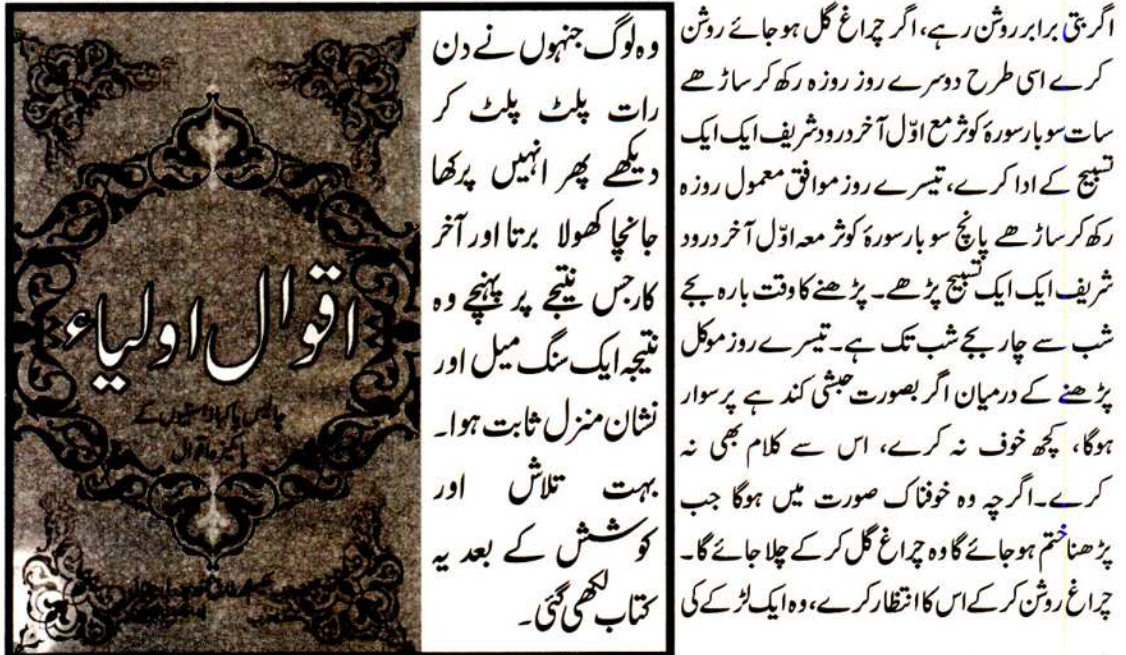 اگربتی برابر روشن رہے، اگر چراغ گل ہوجائے روشن
کرے اسی طرح دوسرے روز روزہ رکھ کر ساڑھے
سات سو بار سورۂ کوثر مع اوّل آخر درود شریف ایک ایک
تسبیح کے ادا کرے، تیسرے روز موافق معمول روزہ
رکھ کر ساڑھے پانچ سو بار سورۂ کوثر معہ اوّل آخر درود
شریف ایک ایک تسبیح پڑھے۔ پڑھنے کا وقت بارہ بجے
شب سے چار بجے شب تک ہے۔ تیسرے روز موکل
پڑھنے کے درمیان اگر بصورت حبشی کند ہے پر سوار
ہوگا، کچھ خوف نہ کرے، اس سے کلام بھی نہ
کرے۔ اگرچہ وہ خوفناک صورت میں ہوگا جب
پڑھنا ختم ہوجائے گا وہ چراغ گل کر کے چلا جائے گا۔
چراغ روشن کر کے اس کا انتظار کرے، وہ ایک لڑکے کی
وہ لوگ جنہوں نے دن
رات پلٹ پلٹ کر
دیکھے پھر انہیں پرکھا
جانچا کھولا برتا اور آخر
کار جس نتیجے پر پہنچے وہ
نتیجہ ایک سنگ میل اور
نشان منزل ثابت ہوا۔
بہت تلاش اور
کوشش کے بعد یہ
کتاب لکھی گئی۔
اقوال اولیاء